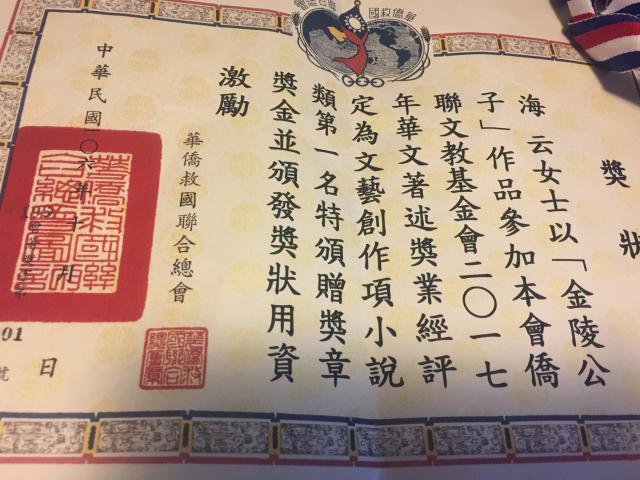 華僑救國聯合總會
獎狀
海 云女士以「金陵公
子」作品參加本會僑
聯文教基金會二〇一七
年華文著述獎業經評
定為文藝創作項小說
類第一名特頒贈獎章
獎金並頒發獎狀用資
激勵
華僑救國聯合總會
中華民國一〇六年十月
日
01
號